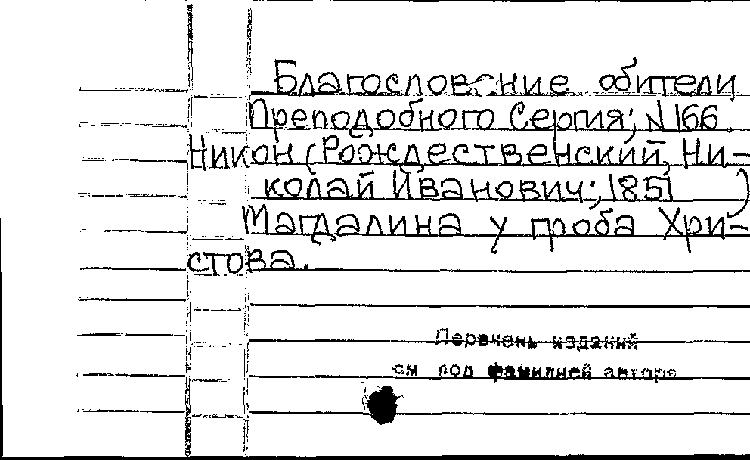 Благословение обители
Преподобного Сергия; N166.
Никон (Рождественский, Ни-
колай Иванович; 1851 )
Магдалина у гроба Хри-
стова.
Перечень изданий
см под фамилией автора